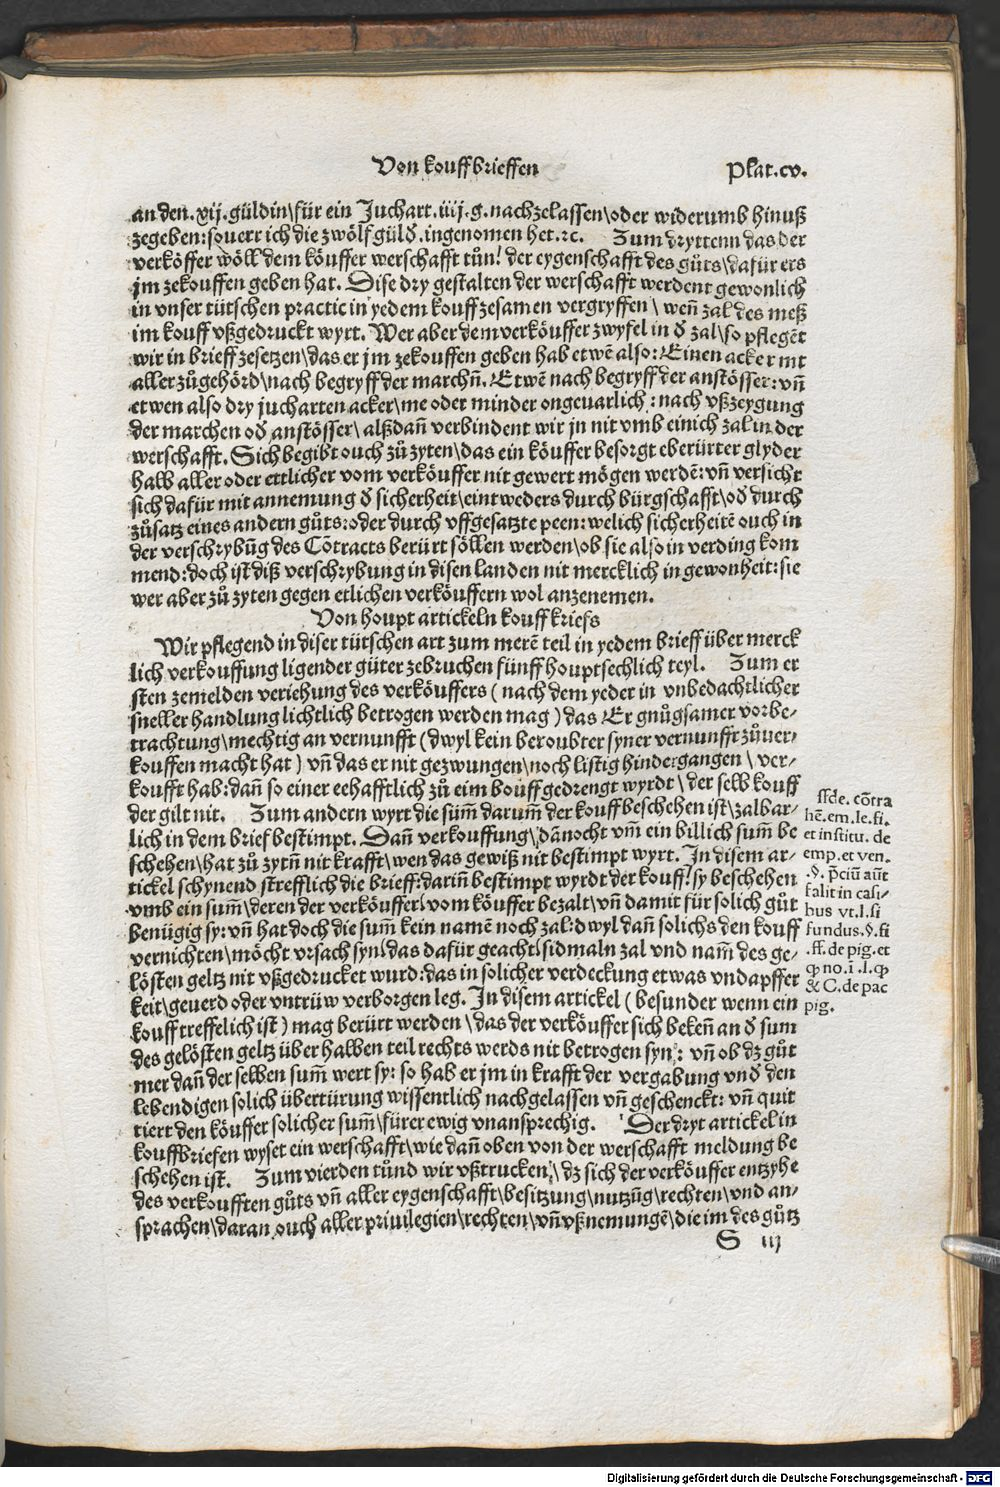 Von kouffbrieffen
Plat.cv.
an den.xij.güldin\für ein Juchart.iiij.g.nachzelassen\oder widerumb hinuß
zegeben:souerr ich die zwölf güld̕.ingenomen het.⁊c. Zum dryttenn das der
verköffer wöll dem köuffer werschafft tůn! der eygenschafft des gůts\dafür ers
jm zekouffen geben hat. Dise dry gestalten der werschafft werdent gewonlich
in vnser tütschen practic in yedem kouff zesamen vergryffen \ weñ zal des meß
im kouff vßgedruckt wyrt. Wer aber dem verköuffer zwyfel in d̕ zal\so pflegēt
wir in brieff zesetzen\das er jm zekouffen geben hab etwē also: Einen acker mt
aller zůgehörd\nach begryff der marchñ. Etwē nach begryff der anstösser: vñ
etwen also dry jucharten acker\me oder minder ongeuarlich: nach vßzeygung
der marchen od̕ anstösser\ alßdañ verbindent wir jn nit vmb einich zal in der
werschafft. Sich begibt ouch zů zyten\das ein köuffer besorgt eberürter glyder
halb aller oder ettlicher vom verköuffer nit gewert mögen werdē: vñ versicht
sich dafür mit annemung d̕ sicherheit\eintweders durch bürgschafft\od̕ durch
zůsatz eines andern gůts: oder durch vffgesatzte peen: welich sicherheitē ouch in
der verschrybūg des Cōtracts berürt söllen werden\ob sie also in verding kom
mend: doch ist diß verschrybung in disen landen nit mercklich in gewonheit: sie
wer aber zů zyten gegen etlichen verköuffern wol anzenemen.
Von houpt artickeln kouffkriefs
Wir pflegend in diser tütschen art zum merē teil in yedem brieff über merck
lich verkouffung ligender güter zebruchen fünff houptsechlich teyl. Zum er
sten zemelden veriehung des verköuffers ( nach dem yeder in vnbedachtlicher
sneller handlung lichtlich betrogen werden mag ) das Er gnůgsamer vorbe⸗
trachtung\mechtig an vernunfft ( dwyl kein beroubter syner vernunfft zůuer⸗
kouffen macht hat ) vñ das er nit gezwungen\noch listig hindergangen \ ver⸗
koufft hab: dañ so einer eehafftlich zů eim bouff gedrengt wyrdt \ der selb kouff
der gilt nit. Zum andern wyrt die sum̄ darum̄ der kouff beschehen ist\zalbar⸗
lich in dem brief bestimpt. Dañ verkouffung\ dānocht vm̄ ein billich sum̄ be
schehen\hat zů zytñ nit krafft\wen das gewiß nit bestimpt wyrt. In disem ar⸗
tickel schynend strefflich die brieff: dariñ bestimpt wyrdt der kouff! sy beschehen
vmb ein sum̄\deren der verköuffer\vom köuffer bezalt\vñ damit für solich gůt
benügig sy: vñ hat doch die sum̄ kein namē noch zal: dwyl dañ solichs den kouff
vernichten\möcht vrsach syn\das dafür geacht\sidmaln zal vnd nam̄ des ge⸗
lösten geltz nit vßgedrucket wurd: das in solicher verdeckung etwas vndapffer
keit\geuerd oder vntrüw verborgen leg. In disem artickel ( besunder wenn ein
kouff treffelich ist ) mag berürt werden \ das der verköuffer sich bekeñ an d̕ sum
des gelösten geltz über halben teil rechts werds nit betrogen syn: vñ ob dz gůt
mer dañ der selben sum̄ wert sy: so hab er jm in krafft der vergabung vnd̕ den
lebendigen solich übertürung wissentlich nachgelassen vñ geschenckt: vñ quit
tiert den köuffer solicher sum̄\fürer ewig vnansprechig. Der dryt artickel in
kouffbriefen wyset ein werschafft\wie dañ oben von der werschafft meldung be
schehen ist. Zum vierden tůnd wir vßtrucken\ dz sich der verköuffer entzyhe
des verkoufften gůts vñ aller eygenschafft\besitzung\nutzūg\rechten\vnd an⸗
sprachen\daran ouch aller priuilegien\rechten\vñ vßnemungē\die im des gůtz
S iij
ff de. cōtra
hē. em. le. fi.
et institu. de
emp. et ven.
.§. p̄ciū aūt
falit in casi⸗
bus vt. l. si
fundus. §. fi
.ff. de pig. et
ꝙ no. i .l. ꝙ
& C. de pac
pig.
Digitalisierung gefördert durch die Deutsche Forschungsgemeinschaft - DFG